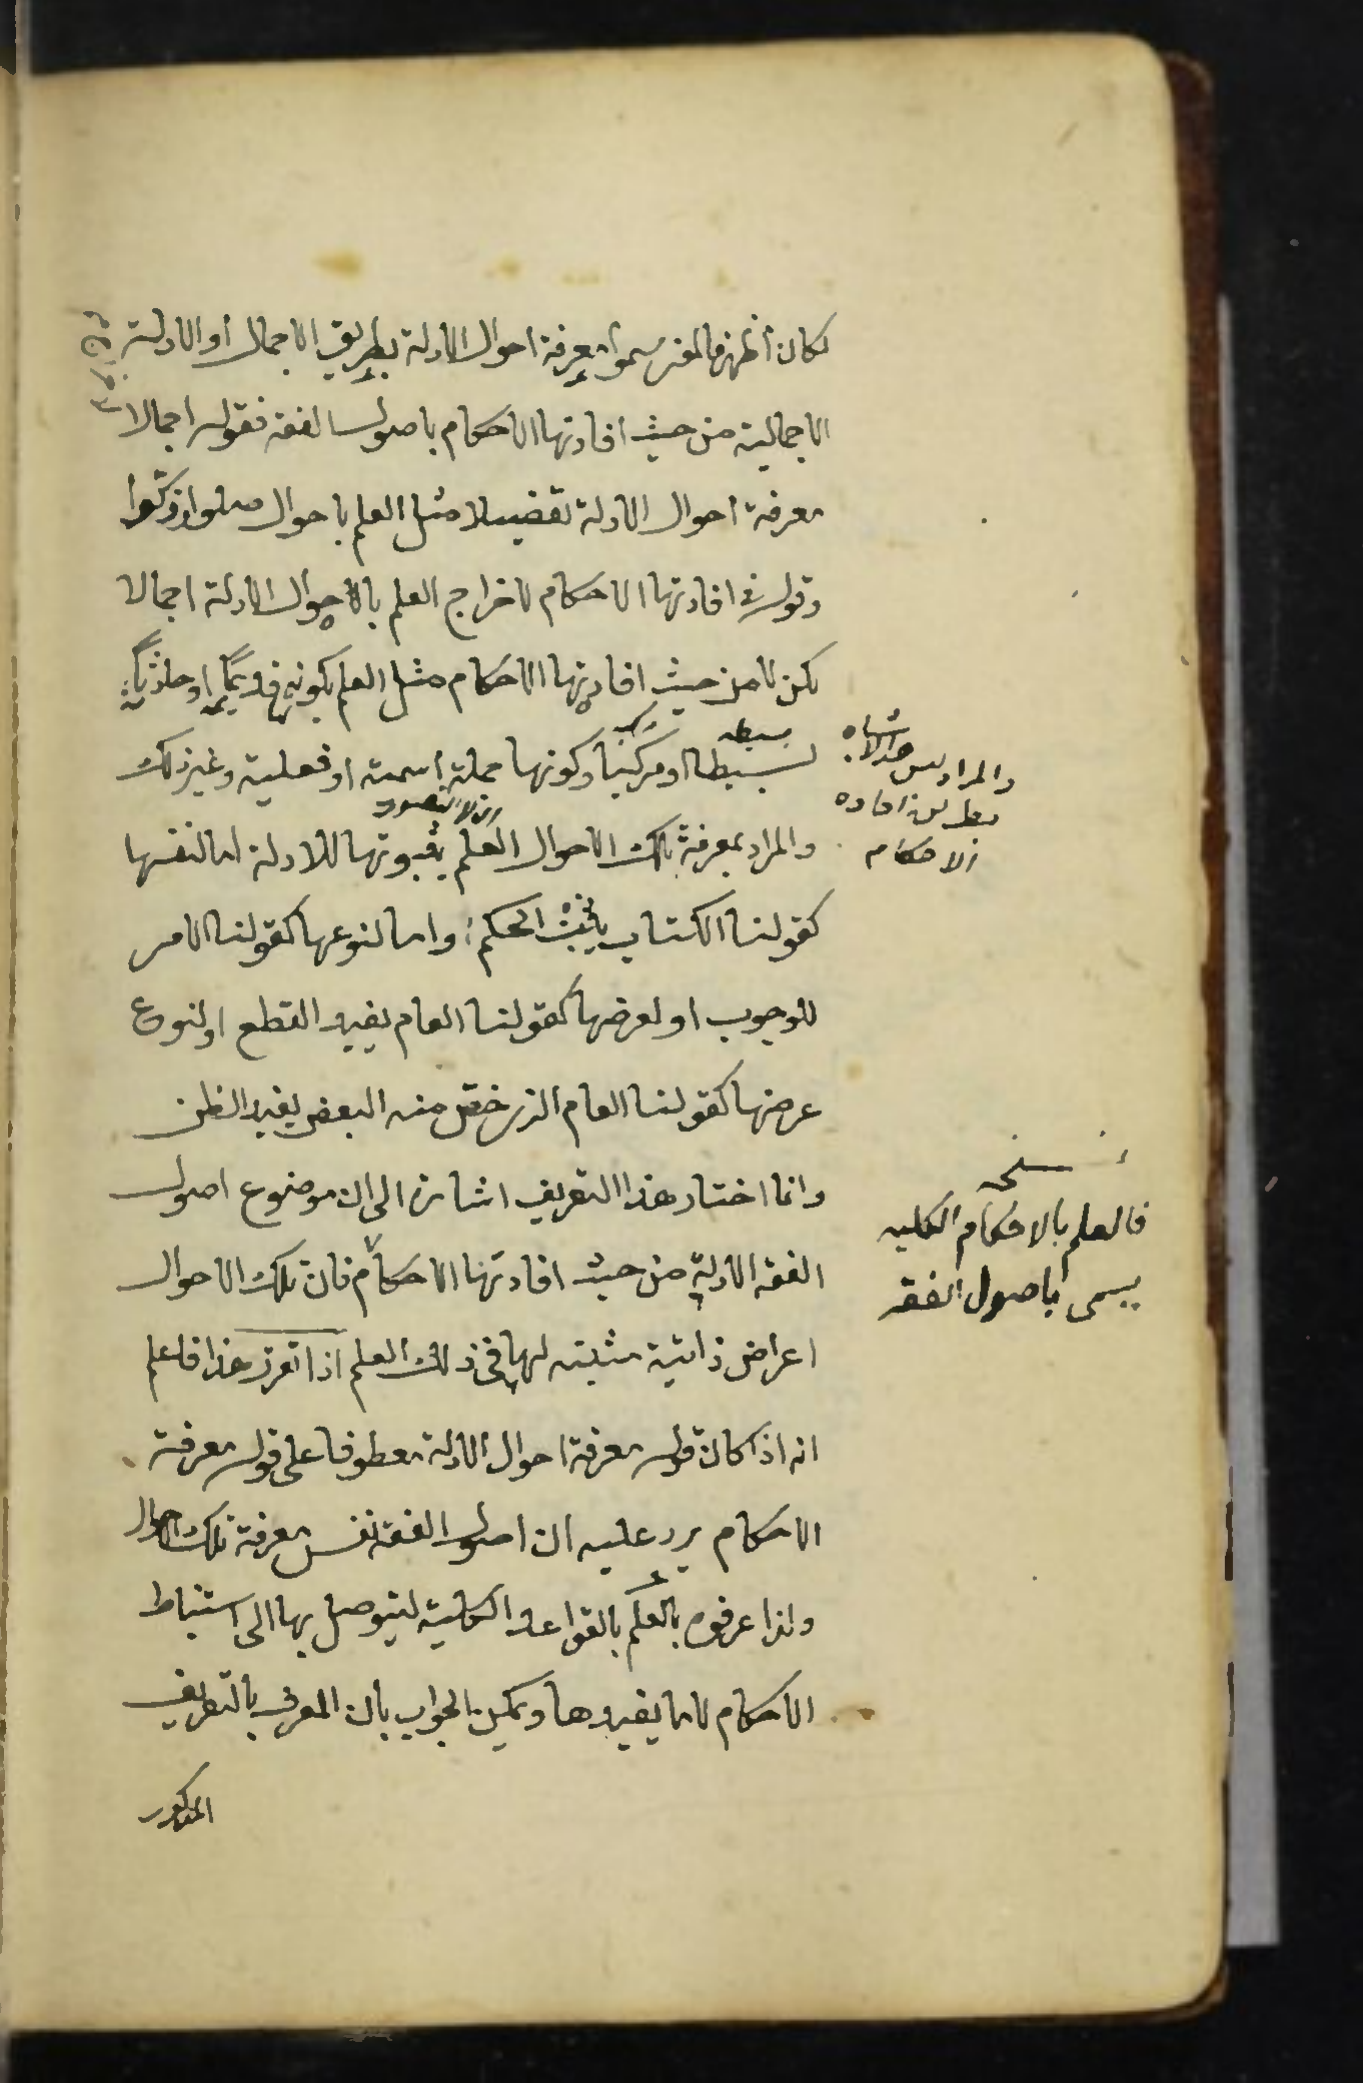 لكان أظهر فالمعنى سموا معرفة احوال الادلة بطريق الاجمال او الادلة
الاجمالية من حيث افادتها الاحكام باصول الفقه فقوله اجمالا
معرفة احوال الادلة تفصيلا مثل العلم باحوال صلوا وزكوا
وقوله في افادتها الاحكام لاخراج العلم بالاحوال الادلة اجمالا
لكن لا من حيث افادتها الاحكام مثل العلم بكونها قديما او حادثا
بسيطه مركبه
بسيطا او مركبا وكونها جملة اسمية او فعلية وغير ذلك
والمراد
افاده
الاحكام
والمراد بمعرفة تلك الاحوال العلم بثبوتها للادلة اما لنفسها
كقولنا الكتاب يثبت الحكم واما لنوعها كقولنا الامر
للوجوب او لعرضها كقولنا العام يفيد القطع او لنوع
عرضها كقولنا العام الذي خص منه البعض يفيد الظن
وانما اختار هذا التعريف اشارة الى ان موضوع اصول
نسخه
فالعلم بالاحكام الكليه
يسمى باصول الفقه
الفقه الادلة من حيث افادتها الاحكام فان تلك الاحوال
اعراض ذاتية مثبته لها في ذلك العلم اذا تقرر هذا فاعلم
انه اذا كان قوله معرفة احوال الادلة معطوفا على قوله معرفة
الاحكام يرد عليه ان اصول الفقه نفس معرفة تلك الاحوال
ولذا عرفوه بالعلم بالقواعد الكلية ليتوصل بها الى استنباط
الاحكام لا ما يفيدها ويمكن الجواب بان المعرف بالتعريف
المذكور